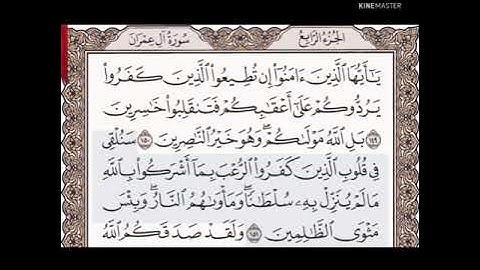 KINEMASTER
سُورَةُ آلِ عِمْرَانَ
الجُزْءُ الرَّابِعُ
يَٰٓأَيُّهَا ٱلَّذِينَ ءَامَنُوٓا۟ إِن تُطِيعُوا۟ ٱلَّذِينَ كَفَرُوا۟
يَرُدُّوكُمْ عَلَىٰٓ أَعْقَٰبِكُمْ فَتَنقَلِبُوا۟ خَٰسِرِينَ
١٤٩ بَلِ ٱللَّهُ مَوْلَىٰكُمْ ۖ وَهُوَ خَيْرُ ٱلنَّٰصِرِينَ ١٥٠ سَنُلْقِى
فِى قُلُوبِ ٱلَّذِينَ كَفَرُوا۟ ٱلرُّعْبَ بِمَآ أَشْرَكُوا۟ بِٱللَّهِ
مَا لَمْ يُنَزِّلْ بِهِۦ سُلْطَٰنًا ۖ وَمَأْوَىٰهُمُ ٱلنَّارُ ۚ وَبِئْسَ
مَثْوَى ٱلظَّٰلِمِينَ ١٥١ وَلَقَدْ صَدَقَكُمُ ٱللَّهُ